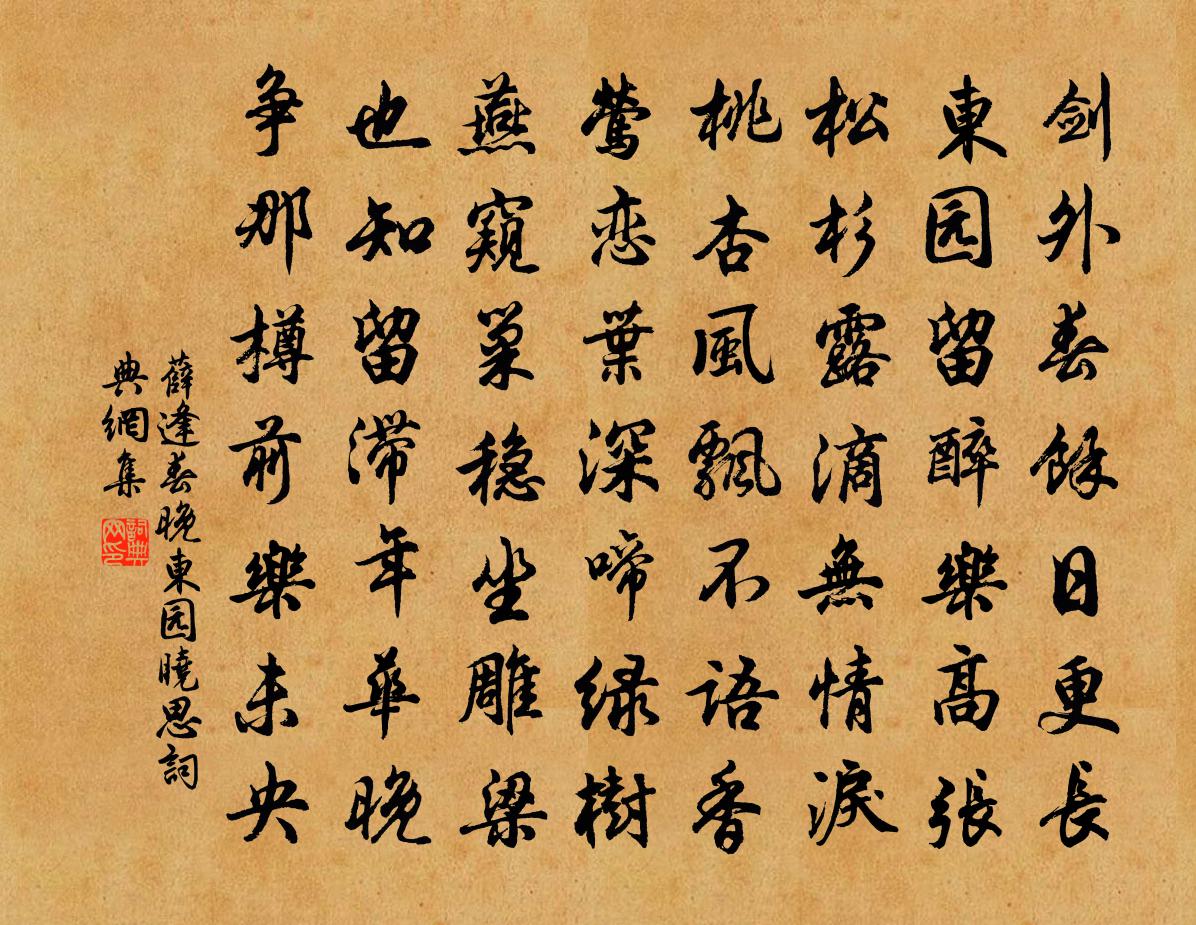 剑外春餘日更長
東园留醉樂高張
松杉露滴無情淚
桃杏風飄不語香
鶯恋葉深啼绿樹
燕窺巢稳坐雕梁
也知留滞年華晚
争那樽前樂未央
薛逢春晚東园曉思詞
典網集
詞典
网印